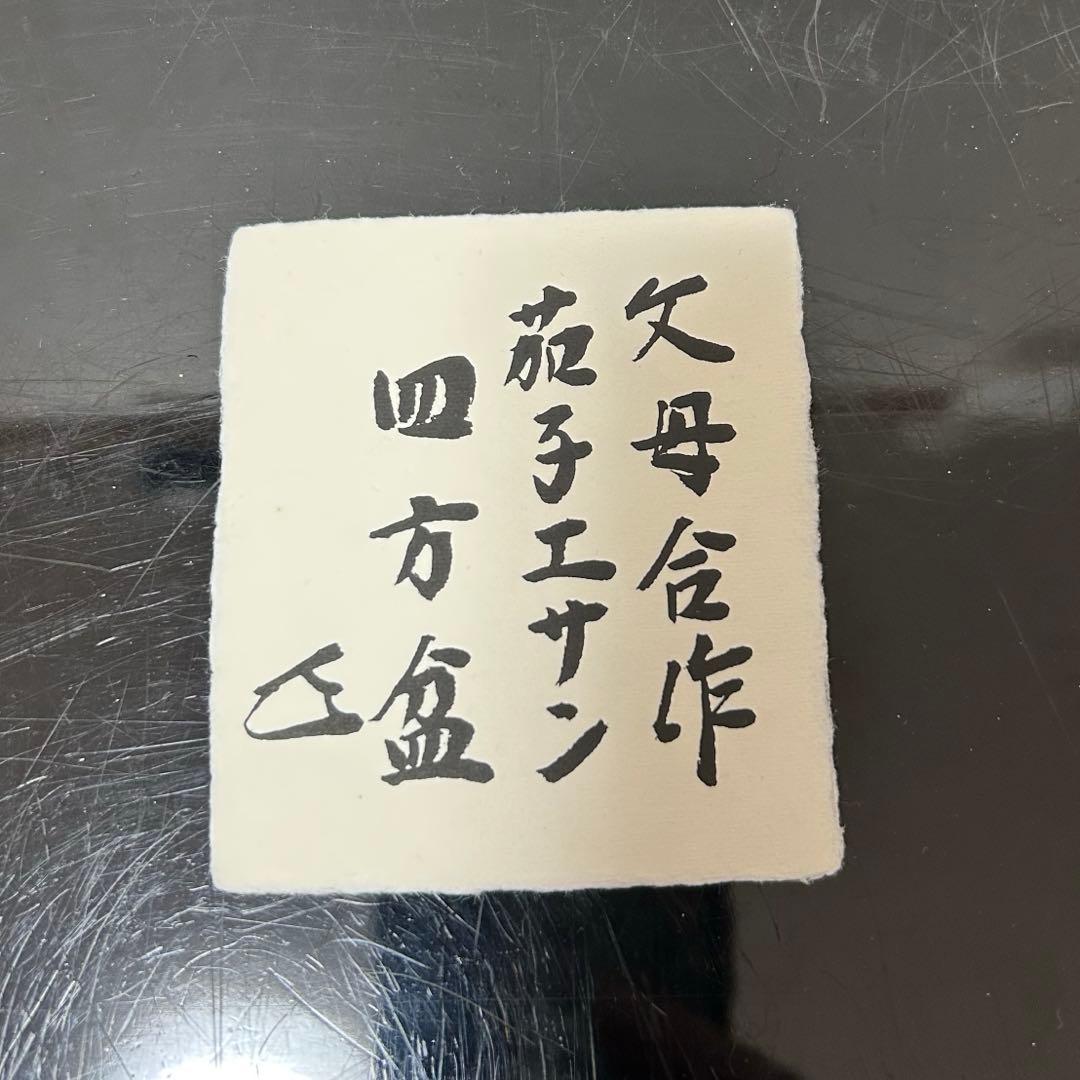 父母合作
茄子エサン
四方盆